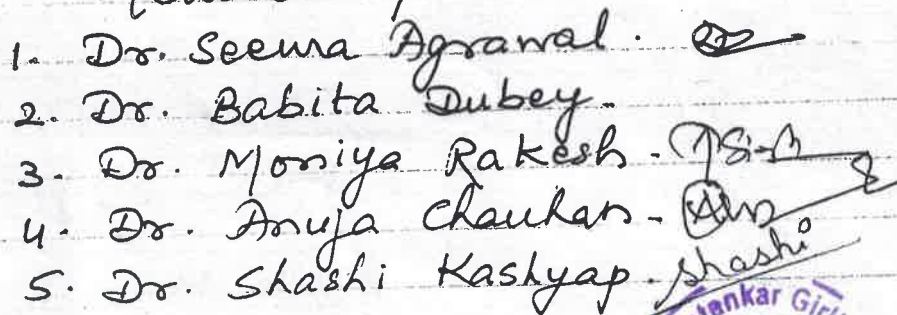 1. Dr. Seema Agrawal.
2. Dr. Babita Dubey.
3. Dr. Moniya Rakesh -
4. Dr. Anuja Chauhan -
5. Dr. Shashi Kashyap. Shashi
ankar Girl